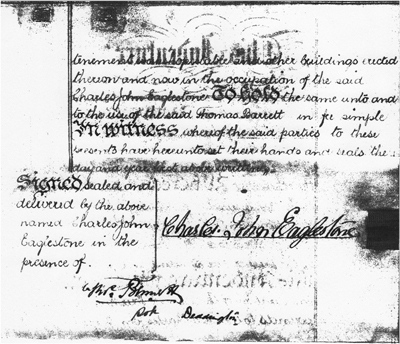 tenement and other buildings erected
thereon and now in the occupation of the said
Charles John Eaglestone To hold the same unto and
to the use of the said Thomas Barrett in fee simple
In witness whereof the said parties to these
presents have hereunto set their hands and seals the
day and year first above written
Signed sealed and
delivered by the above
named Charles John
Eaglestone in the
presence of
Charles John Eaglestone
Deddington